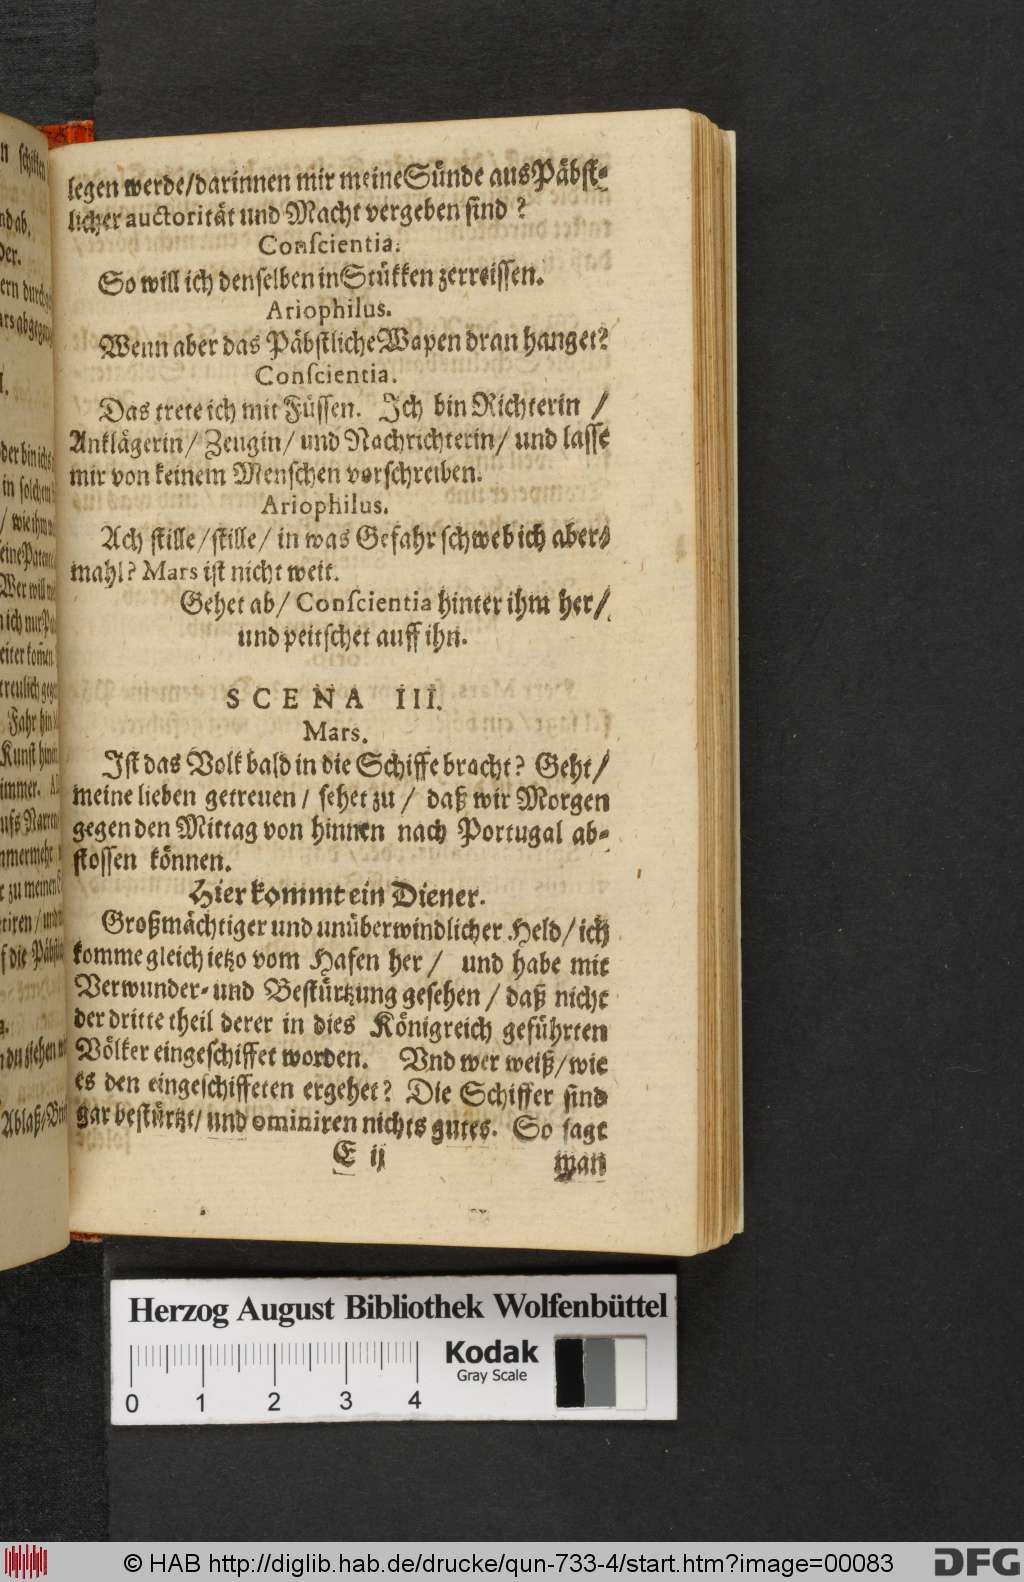 legen werde/darinnen mir meine Sünde aus Päbst-
licher auctorität und Macht vergeben sind?
Conscientia.
So will ich denselben in Stükken zerreissen.
Ariophilus.
Wenn aber das Päbstliche Wapen dran hanget?
Conscientia.
Das trete ich mit Füssen. Ich bin Richterin /
Anklägerin/ Zeugin/ und Nachrichterin/ und lasse
mir von keinem Menschen vorschreiben.
Ariophilus.
Ach stille/stille/ in was Gefahr schweb ich aber-
mahl? Mars ist nicht weit.
Gehet ab/ Conscientia hinter ihm her/
und peitschet auff ihn.
SCENA III.
Mars.
Ist das Volk bald in die Schiffe bracht? Geht/
meine lieben getreuen/ sehet zu/ daß wir Morgen
gegen den Mittag von hinnen nach Portugal ab-
stossen können.
Hier kommt ein Diener.
Großmächtiger und unüberwindlicher Held/ich
komme gleich ietzo vom Hafen her/ und habe mit
Verwunder- und Bestürtzung gesehen/ daß nicht
der dritte theil derer in dies Königreich geführten
Völker eingeschiffet worden. Vnd wer weiß/wie
es den eingeschiffeten ergehet? Die Schiffer sind
gar bestürtzt/ und ominiren nichts gutes. So sagt
E ij man
Herzog August Bibliothek Wolfenbüttel
Kodak
Gray Scale
0 1 2 3 4
© HAB http://diglib.hab.de/drucke/qun-733-4/start.htm?image=00083
DFG